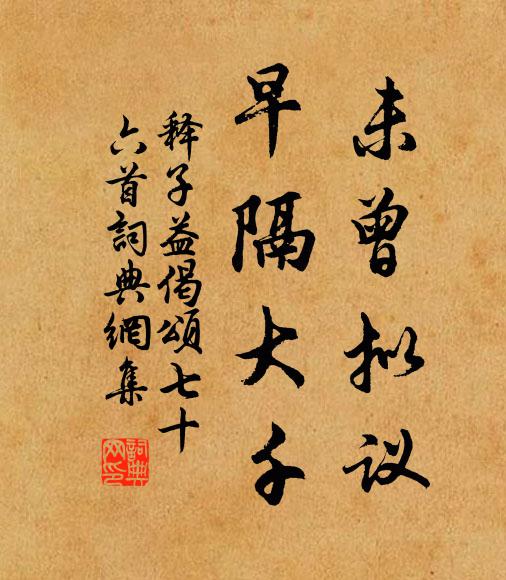 未曾拟议
早隔大千
释子益偈頌七十
六首詞典網集
詞典
网印